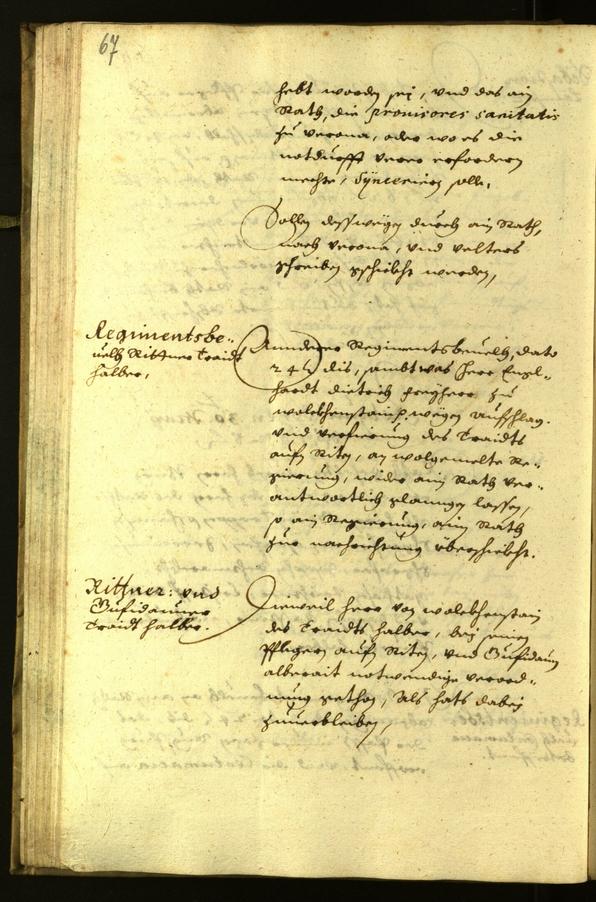 67
hebt worden sey, vnd das ain
Rath, die prouisores sanitatis
zu verona, oder wo es die
notdurfft verer erfordern
mechte, Synceriern solle.
Sollen desswegen durch ain Rath,
nach verona, vnd velters
schreiben gschickht werden,
Regimentsbe-
uelh Rittner Traidt
halber,
Annderer Regimentsbeuelh, dato
24 dis, sambt was Herr Engl-
hardt dietrich freyherr zu
wolckhenstain p. wegen aufschlag
vnd verfierung des Traidts
aufn Riten, an wolgemelte Re-
gierung, wider ain Rath ver-
antwortlich glanngen lassen,
so ain Regierung, aim Rath
zur nachrichtung überschickht.
Rittner: vnd
Gufidauner
Traidt halber.
Dieweil Herr von wolckhenstain
des Traidts halber, bey seinen
Pflegern aufn Riten, vnd Gufidaun
alberait notwendige verord-
nung gethan, Als hats dabey
zuuerbleiben,